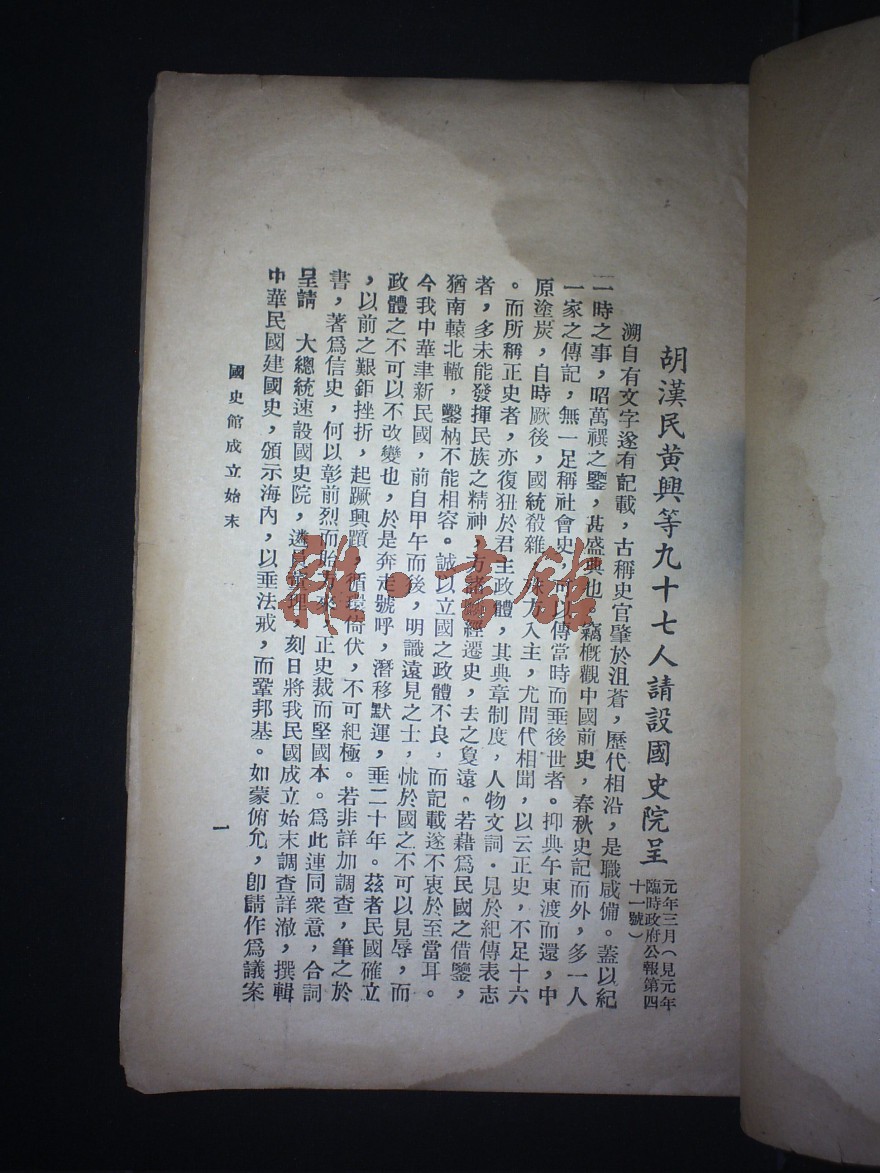 胡漢民黄興等九十七人請設國史院呈
元年三月(見元年
臨時政府公報第四
十一號)
溯自有文字遂有記載，古稱史官肇於沮蒼，歷代相沿，是職咸備。蓋以紀
一時之事，昭萬禩之鑒，甚盛典也。竊槪觀中國前史，春秋史記而外，多一人
一家之傳記，無一足稱社會史，可以傳當時而垂後世者。抑典午東渡而還，中
原塗炭，自時厥後，國統殽雜，殊方入主，尤間代相聞，以云正史，不足十六
。而所稱正史者，亦復狃於君主政體，其典章制度，人物文詞。見於紀傳表志
者，多未能發揮民族之精神，方諸麟經遷史，去之夐遠。若藉爲民國之借鑒，
猶南轅北轍，鑿枘不能相容。誠以立國之政體不良，而記載遂不衷於至當耳。
今我中華聿新民國，前自甲午而後，明識遠見之士，怵於國之不可以見辱，而
政體之不可以不改變也，於是奔走號呼，潛移默運，垂二十年。茲者民國確立
，以前之艱鉅挫折，起蹶興躓，循環倚伏，不可紀極。若非詳加調查，筆之於
書，著爲信史，何以彰前烈而詒方來，正史裁而堅國本。爲此連同衆意，合詞
呈請　大總統速設國史院，遴員董理，刻日將我民國成立始末調查詳澈，撰輯
中華民國建國史，頒示海內，以垂法戒，而鞏邦基。如蒙俯允，卽請作爲議案
國史館成立始末
一
雜·書館